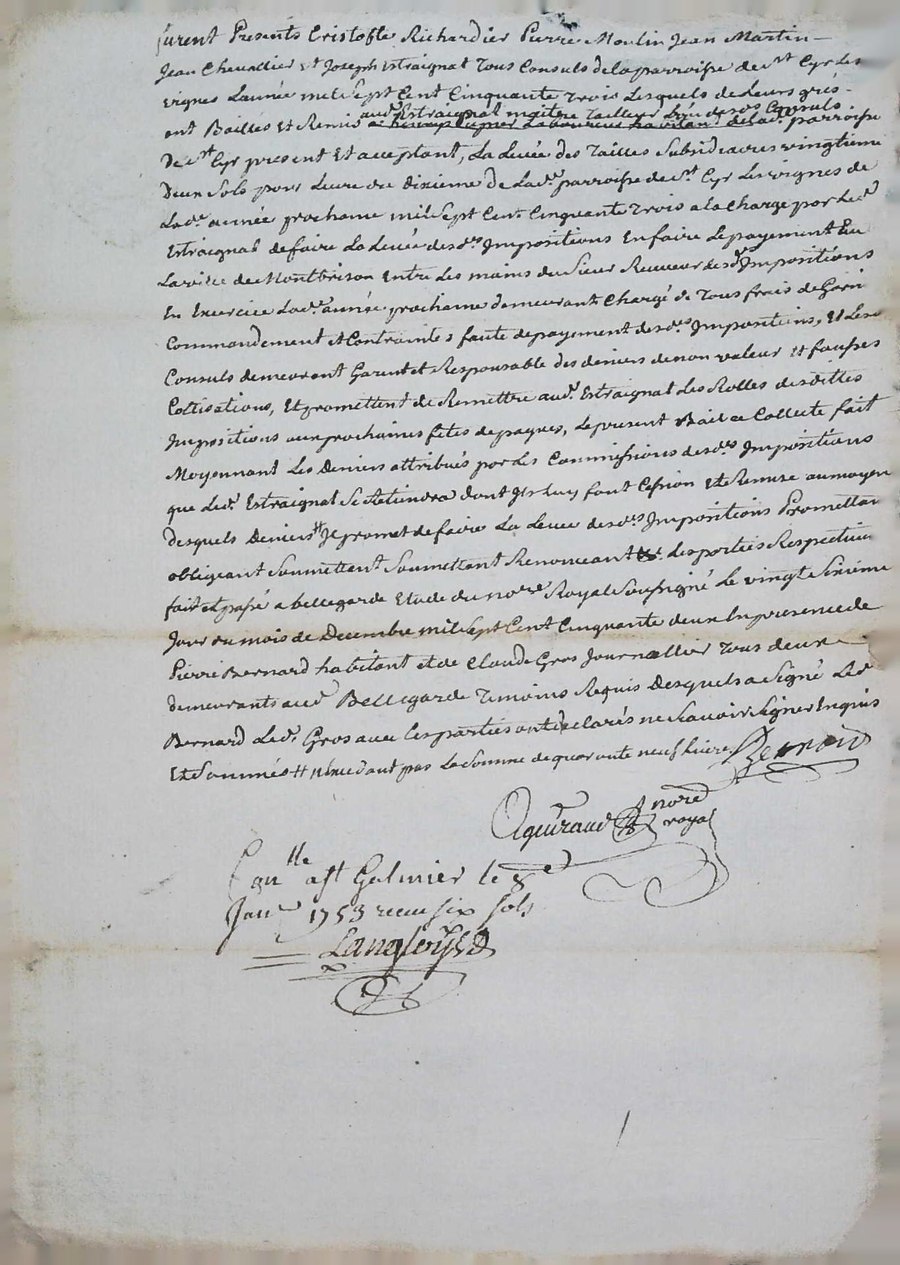 furent Presents Cristofle Richardier Pierre Moulin Jean Martin
Jean Chevallier et Joseph Estraignat Tous Consuls de la parroisse de st Cyr Les
vignes Lannée mil Sept Cent Cinquante trois Lesquels de Leurs grés
ont Baillés Et Remis
aud. Estraignat
tailleur L'un desds Consuls
de lad. parroisse
De st Cyr present Et acceptant, La Levée des Tailles Subside vingtieme
Deux Sols pour Livre du dixieme de Lade parroisse de st Cyr Les vignes de
Lade année prochaine mil Sept Cent Cinquante trois a la charge par Led
Estraignat de faire La Levée desds Impositions En faire Le payement En
La ville de Montbrison Entre Les mains du Sieur Receveur desd Impositions
En Exercice Lade année prochaine demeurant Chargé de Tous frais de
Commandement et Contraintes faute de payement desds Impositions, Et Lesd
Consuls demeurent Garent et Responsable des deniers de non valeur et fausses
Cottisations, Et promettent de Remettre aud. Estraignat Les Rolles desdittes
Impositions aux prochaines fetes de paques, Le present Bail de Collecte fait
Moyennant Les Deniers attribués par Les Commissions desds Impositions
que Led. Estraignat Se Retiendra dont Ils Luy font Cession Et Remise au moyen
desquels Deniers # Il promet de faire La Levée desds Impositions Promettan
obligeant Soumettant Renonceant Les parties Respective
fait et passé a bellegarde Etude du nore Royal Soussigné Le vingt Sixieme
Jour du mois de Decembre mil Sept Cent Cinquante deux En presence de
Pierre Bernard habitant et de Claude Gros Journallier Tous deux
demeurants aud Bellegarde Temoins Requis Desquels a Signé Led
Bernard Led. Gros avec Les parties ont declarés ne Scavoir Signer Enquis
Et Sommés # nexcedant pas La Somme de quarante neuf Livres Bernard
nore
royal
Conlle a st Galmier le 8e
Janr 1753 receu six sols
Langloys